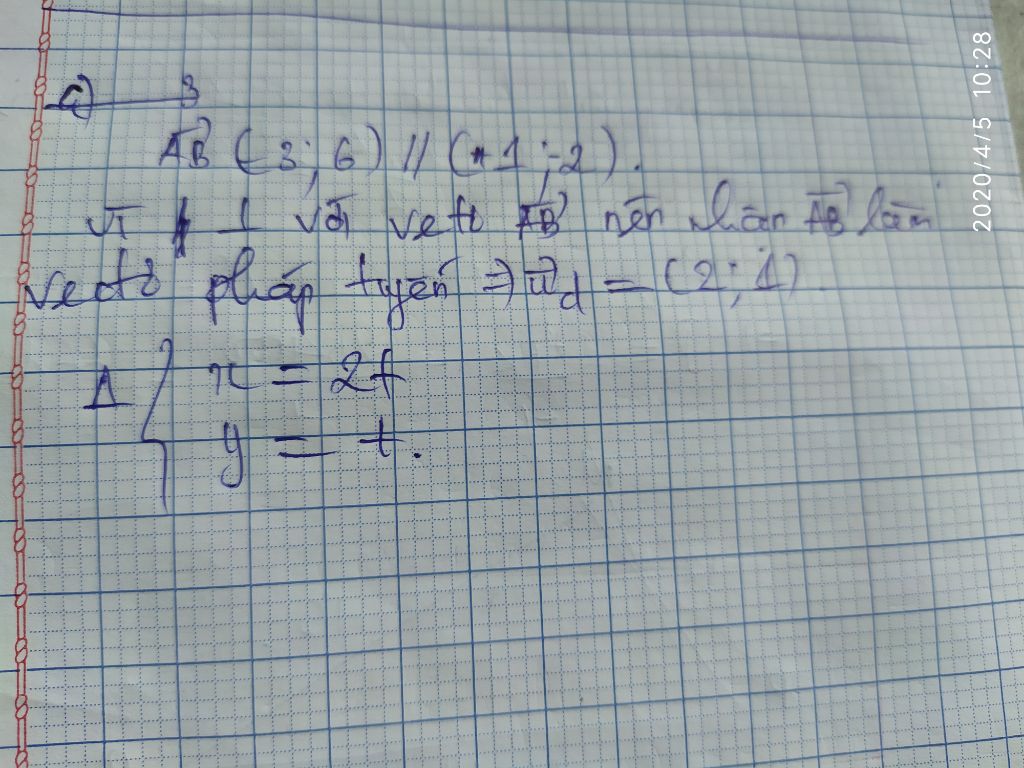 c)
3
AB⃗ (-3; 6) // (1; -2).
vì ⊥ với vectơ AB⃗ nên nhận AB⃗ làm
vectơ pháp tuyến ⇒ u⃗d = (2; 1).
Δ { x = 2t
y = t.
2020/4/5 10:28